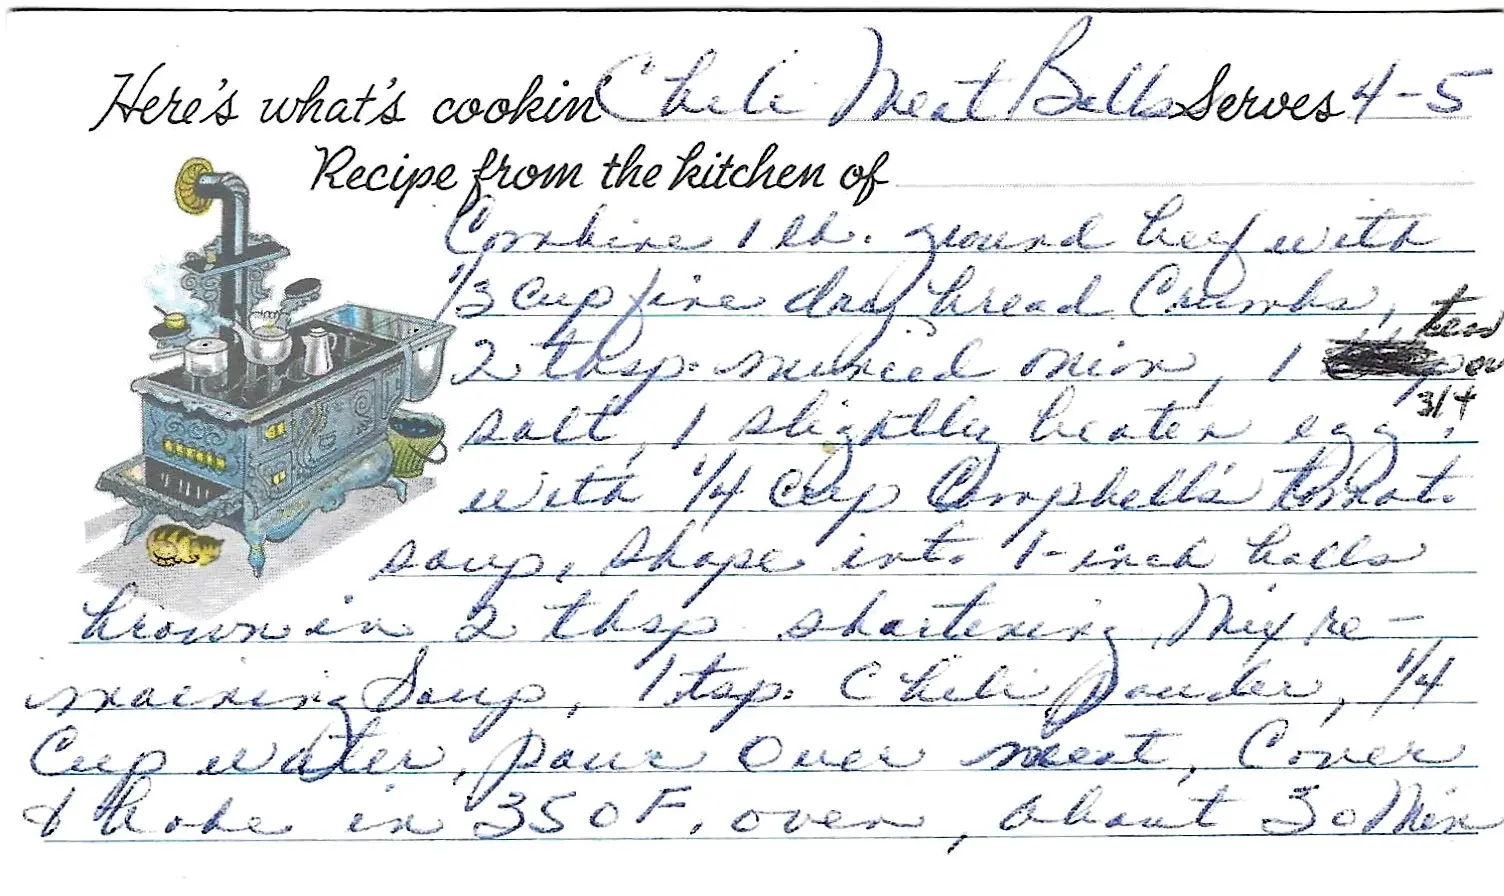 Here's what's cookin Chili Meat Balls Serves 4-5
Recipe from the kitchen of
Combine 1 lb. ground beef with
1/3 cup fine dry bread Crumbs,
2 tbsp. minced onion, 1
3/4
salt, 1 slightly beaten egg,
with 1/4 cup Campbell's tomato
soup, shape into 1-inch balls
brown in 2 tbsp shortening, Mix re-
maining Soup, 1 tsp. Chili Powder, 1/4
Cup water, pour over meat, Cover
& bake in 350 F. oven, about 30 Min